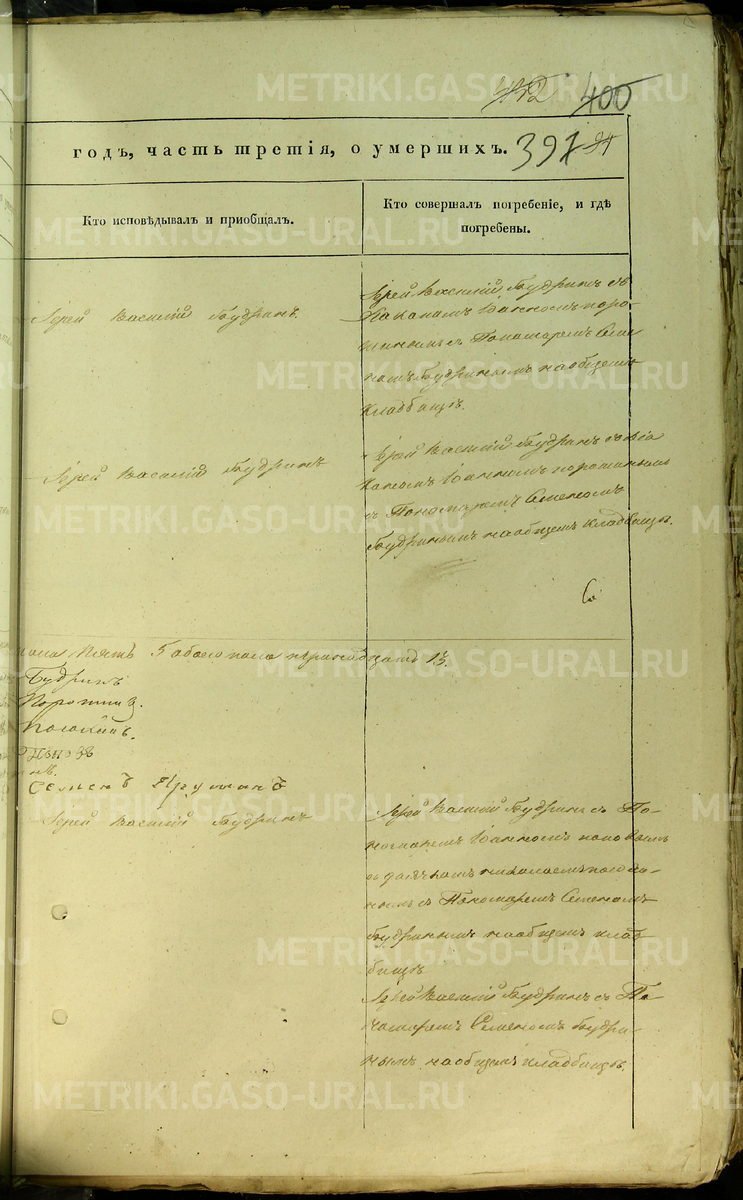 400
годъ, часть третія, о умершихъ. 397
Кто исповѣдывалъ и приобщалъ.
Кто совершалъ погребеніе, и гдѣ
погребены.
Іерей Василій Будринъ.
Іерей Василій Будринъ съ
Іоанномъ Поро-
шинымъ съ Пономаремъ Семе-
номъ Будринымъ на общемъ
кладбищѣ.
Іерей Василій Будринъ
Іерей Василій Будринъ съ Діа
кономъ Іоанномъ Порошинымъ
съ Пономаремъ Семеномъ
Будринымъ на общемъ кладбищѣ.
пола пять 5 обоего пола 13.
Будринъ
Семенъ
Іерей Василій Будринъ
Іерей Василій Будринъ съ По-
номаремъ Іоанномъ Поповымъ
Николаемъ
съ Пономаремъ Семеномъ
Будринымъ на общемъ клад-
бищѣ
Іерей Василій Будринъ съ По-
номаремъ Семеномъ Будри-
нымъ на общемъ кладбищѣ.
METRIKI.GASO-URAL.RU